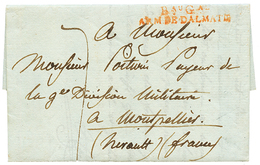 ARM DE DALMATIE
A Monsieur
Monsieur Poitevin Payeur de
la 9e Division Militaire
a Montpellier
(herault) (france)